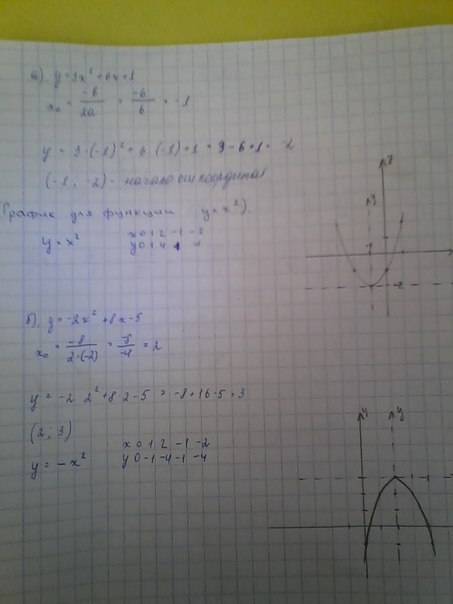 а) y = 3x² + 6x + 1
x₀ = -b/2a = -6/6 = -1
y = 3·(-1)² + 6·(-1) + 1 = 3 - 6 + 1 = -2
(-1, -2) - начало коорднат
График для функции y = x²).
y = x² x 0 1 2 -1 -2
y 0 1 4 1
б) y = -2x² + 8x - 5
x₀ = -8/2·(-2) = -8/-4 = 2
y = -2·2² + 8·2 - 5 = -8 + 16 - 5 = 3
(2, 3)
y = -x² x 0 1 2 -1 -2
y 0 -1 -4 -1 -4
y
y
y
y